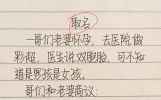 取名
一哥们老婆怀孕,去医院做
彩超,医生说双胞胎,可不知
道是男孩是女孩。
哥们和老婆商议: